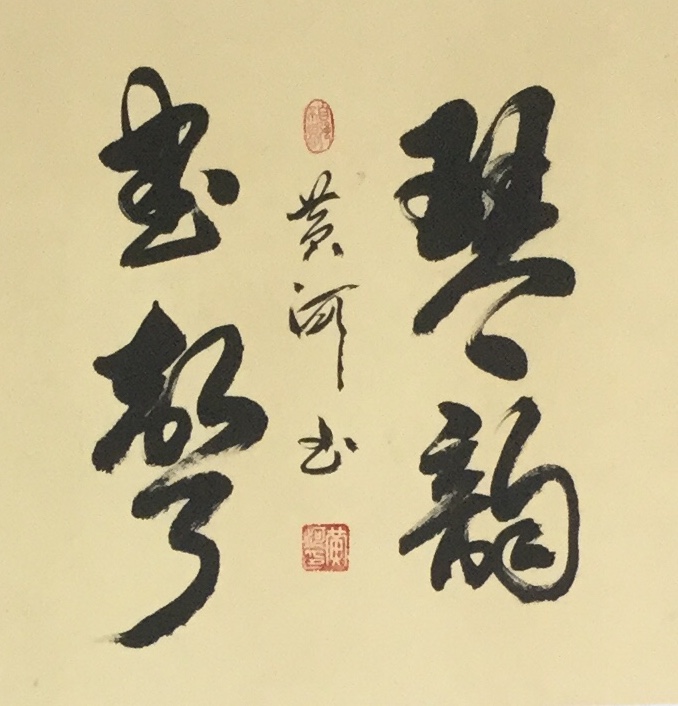 琴韵
書聲
黄河书